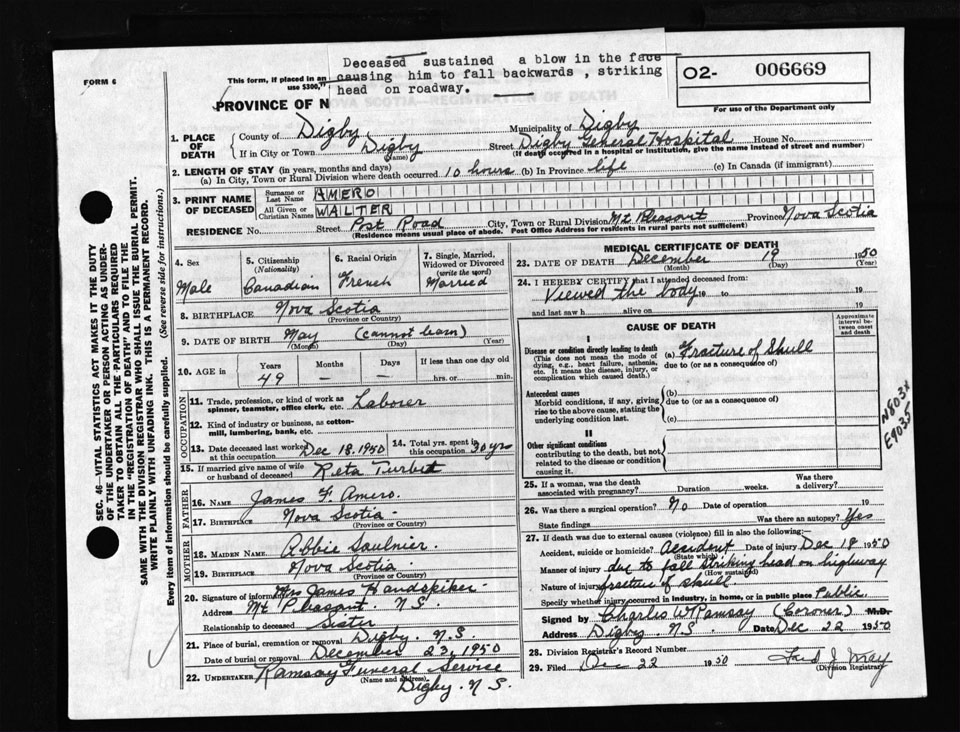 Deceased sustained a blow in the face
causing him to fall backwards, striking
head on roadway.
FORM 6
This form, if placed in an
use $300,
02- 006669
For use of the Department only
PROVINCE OF NOVA SCOTIA—REGISTRATION OF DEATH
1. PLACE OF DEATH
County of Digby Municipality of Digby
If in City or Town Digby (Name) Street Digby General Hospital House No.
(If death occurred in a hospital or institution, give the name instead of street and number)
2. LENGTH OF STAY (in years, months and days)
(a) In City, Town or Rural Division where death occurred 10 hours (b) In Province life (c) In Canada (if immigrant)
3. PRINT NAME OF DECEASED
Surname or Last Name AMERO
All Given or Christian Names WALTER
RESIDENCE No. Street Post Road City, Town or Rural Division Mt. Pleasant Province Nova Scotia
(Residence means usual place of abode. Post Office Address for residents in rural parts not sufficient)
4. Sex
Male
5. Citizenship (Nationality)
Canadian
6. Racial Origin
French
7. Single, Married, Widowed or Divorced (write the word)
Married
8. BIRTHPLACE Nova Scotia
(Province or Country)
9. DATE OF BIRTH May (cannot learn)
(Month) (Day) (Year)
10. AGE in Years Months Days If less than one day old
49 – – hrs. or min.
OCCUPATION
11. Trade, profession, or kind of work as spinner, teamster, office clerk, etc. Laborer
12. Kind of industry or business, as cotton-mill, lumbering, bank, etc.
13. Date deceased last worked at this occupation Dec 18. 1950
14. Total yrs. spent in this occupation 30 yrs
15. If married give name of wife or husband of deceased Reta Turbit
FATHER
16. NAME James F. Amero.
17. BIRTHPLACE Nova Scotia
(Province or Country)
MOTHER
18. MAIDEN NAME Abbie Saulnier.
19. BIRTHPLACE Nova Scotia
(Province or Country)
20. Signature of informant Mrs James Handspiker
Address Mt. Pleasant. N.S.
Relationship to deceased Sister
21. Place of burial, cremation or removal Digby. N.S.
Date of burial or removal December 23, 1950
22. UNDERTAKER Ramsay Funeral Service
(Name and address) Digby. N.S.
MEDICAL CERTIFICATE OF DEATH
23. DATE OF DEATH December 19 1950
(Month) (Day) (Year)
24. I HEREBY CERTIFY that I attended deceased from:
Viewed the body 19 to 19
and last saw h alive on 19
CAUSE OF DEATH
Approximate interval between onset and death
I
Disease or condition directly leading to death
(This does not mean the mode of dying, e.g., heart failure, asthenia, etc. It means the disease, injury, or complication which caused death.)
(a) Fracture of Skull
due to (or as a consequence of)
Antecedent causes
Morbid conditions, if any, giving rise to the above cause, stating the underlying condition last.
(b)
due to (or as a consequence of)
(c)
II
Other significant conditions
contributing to the death, but not related to the disease or condition causing it.
N803X
E9035
25. If a woman, was the death associated with pregnancy? Duration weeks. Was there a delivery?
26. Was there a surgical operation? No Date of operation 19
State findings Was there an autopsy? Yes
27. If death was due to external causes (violence) fill in also the following:
Accident, suicide or homicide? Accident Date of injury Dec 18 1950
(State which)
Manner of injury due to fall striking head on highway
(How sustained)
Nature of injury fracture of skull
Specify whether injury occurred in industry, in home, or in public place Public.
Signed by Charles W Ramsay (Coroner) M.D.
Address Digby N.S. Date Dec 22 1950
28. Division Registrar's Record Number
29. Filed Dec 22 1950
(Division Registrar)
SEC. 46—VITAL STATISTICS ACT MAKES IT THE DUTY
OF THE UNDERTAKER OR PERSON ACTING AS UNDER-
TAKER TO OBTAIN ALL THE PARTICULARS REQUIRED
IN THE "REGISTRATION OF DEATH" AND TO FILE THE
SAME WITH THE DIVISION REGISTRAR WHO SHALL ISSUE THE BURIAL PERMIT.
WRITE PLAINLY WITH UNFADING INK. THIS IS A PERMANENT RECORD.
Every item of information should be carefully supplied. (See reverse side for instructions.)